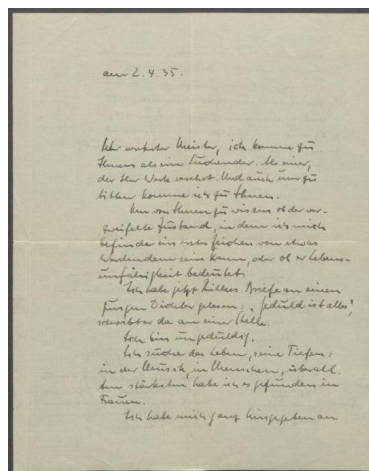 am 2.4.55.
Sehr verehrter Meister, ich komme zu
Ihnen als ein Suchender. Als einer,
der Ihr Werk verehrt. Und auch um zu
bitten komme ich zu Ihnen.
Um von Ihnen zu wissen ob der ver-
zweifelte Zustand, in dem ich mich
befinde ein erstes Zeichen von etwas
Werdendem sein kann, oder ob er Lebens-
unfähigkeit bedeutet.
Ich habe jetzt Rilkes Briefe an einen
jungen Dichter gelesen. „Geduld ist alles“,
schreibt er da an einer Stelle.
Ich bin ungeduldig.
Ich suche das Leben, seine Tiefen,
in der Musik, in Menschen, überall.
Am stärksten habe ich es gefunden in
Frauen.
Ich habe mich ganz hingegeben an